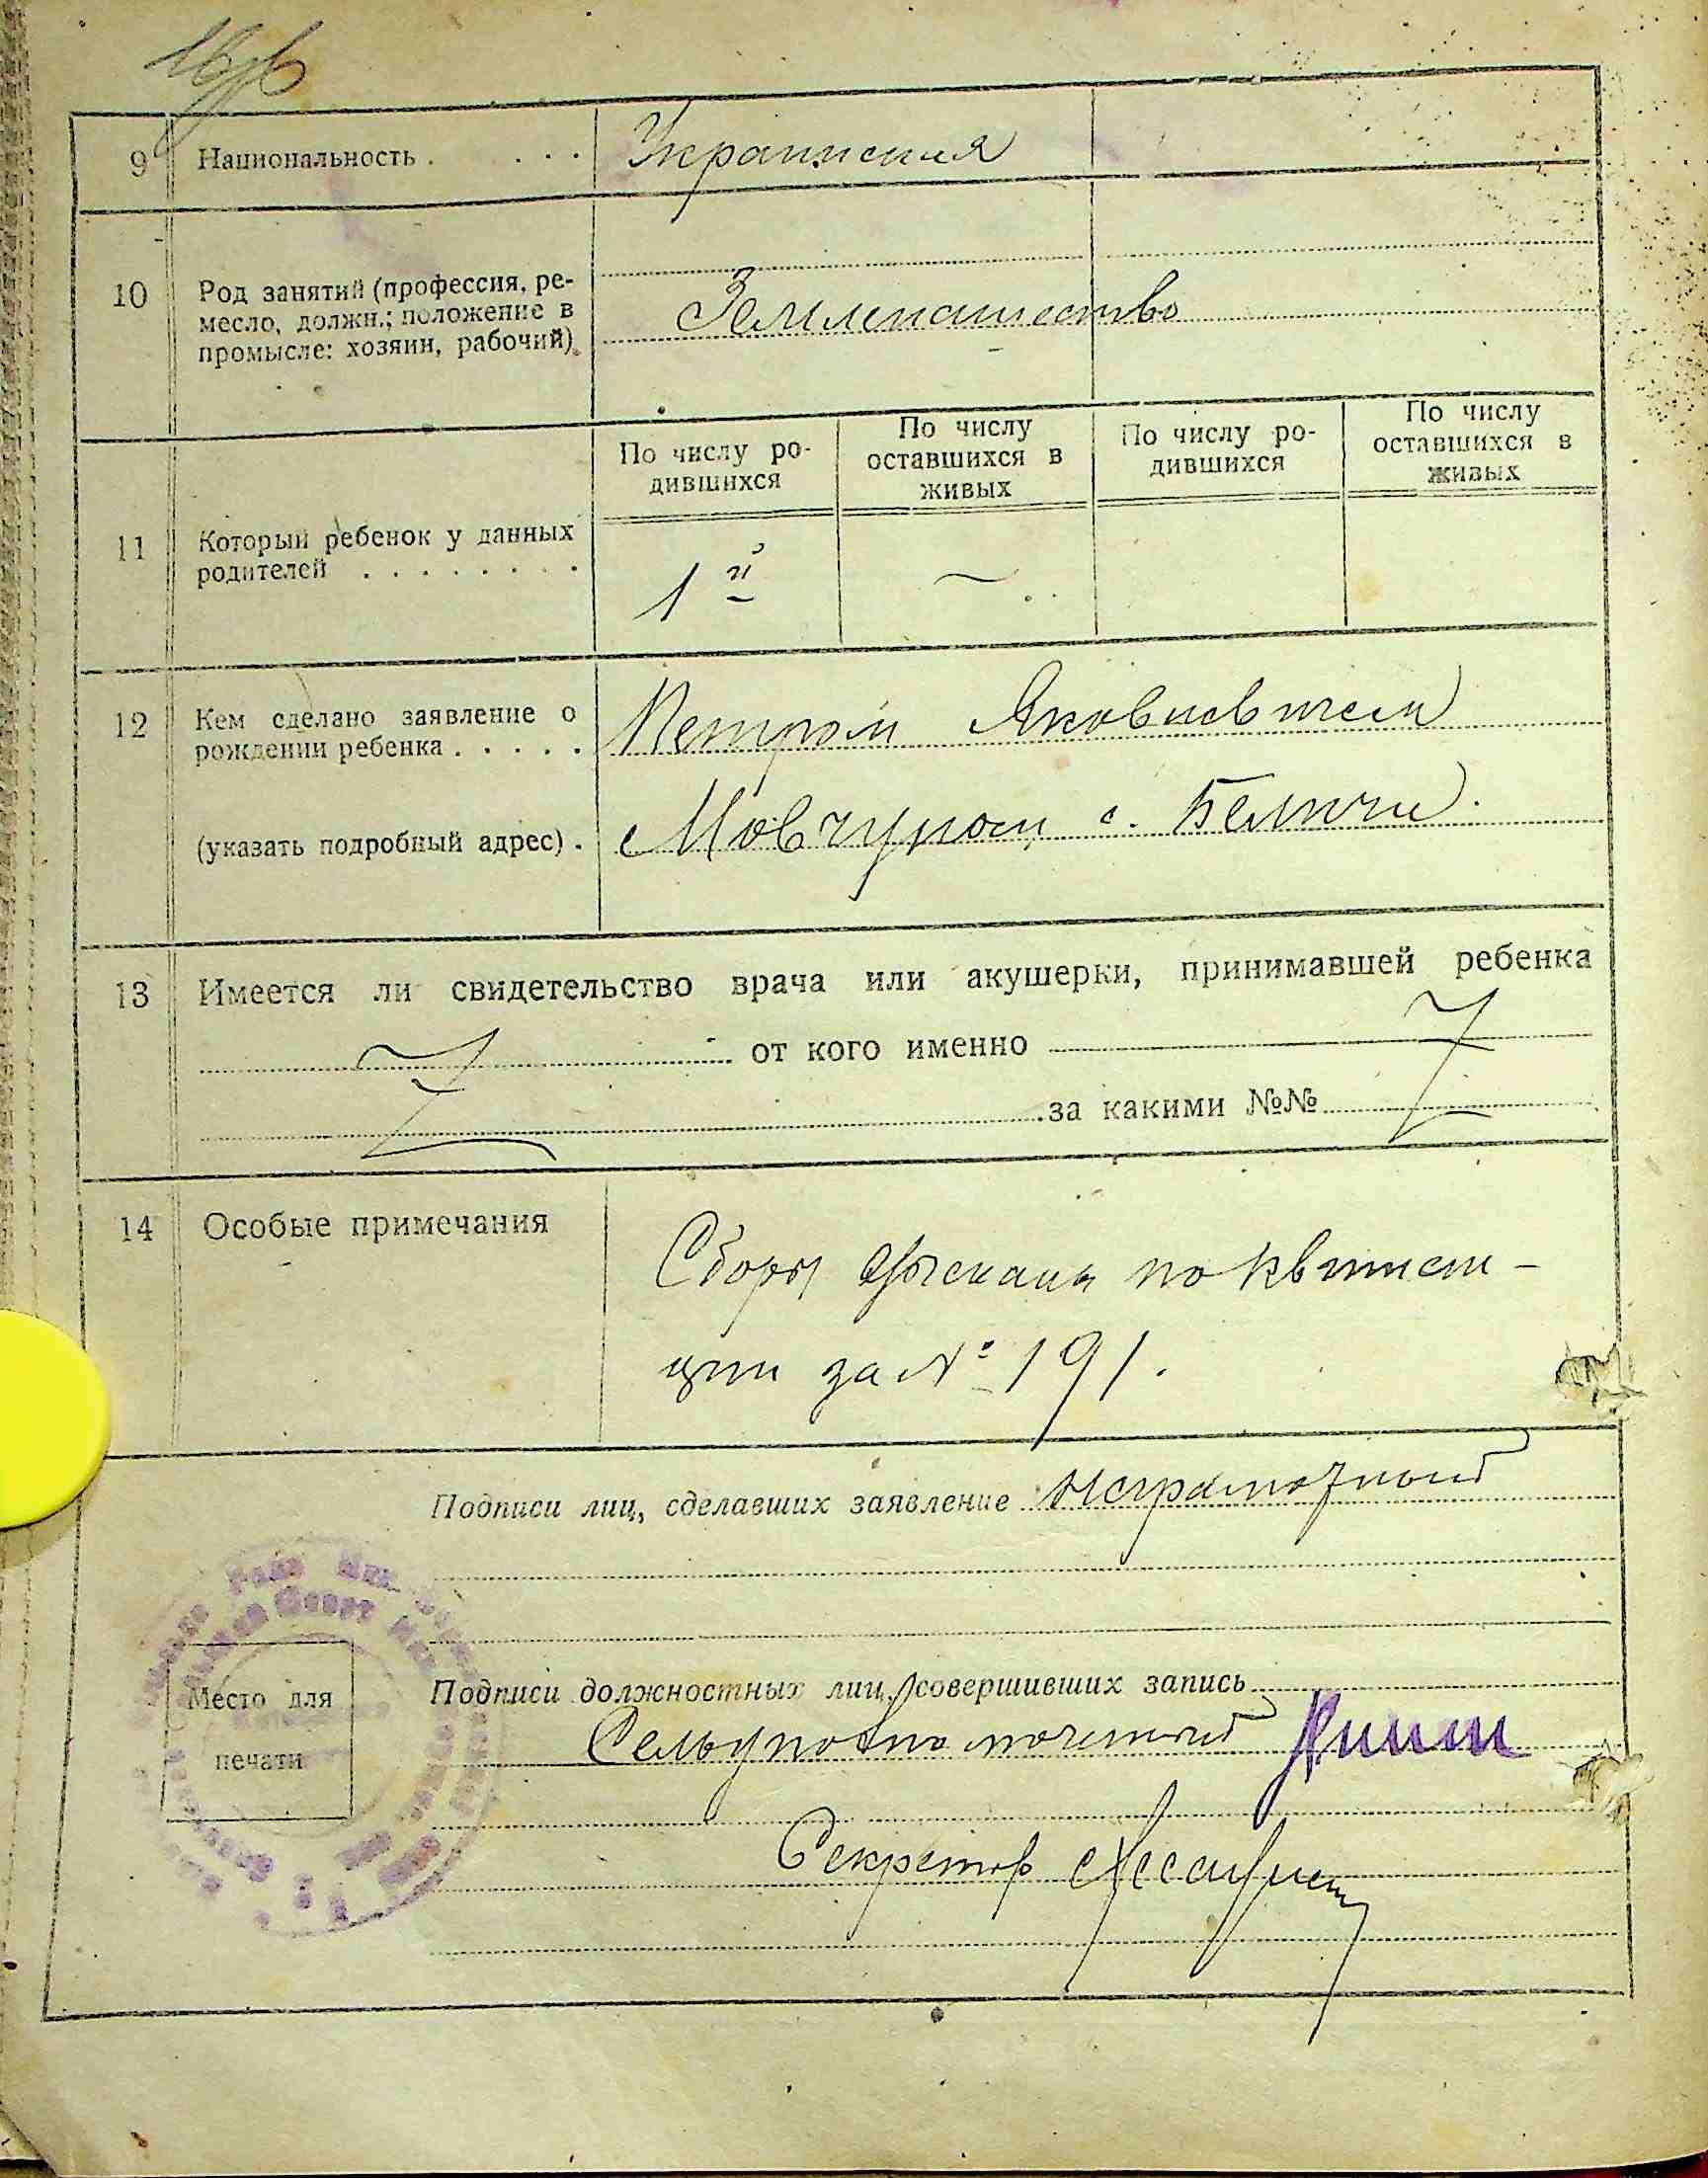 9 Национальность . . . . Украинская
10 Род занятий (профессия, ре-
месло, должн.; положение в
промысле: хозяин, рабочий).
Землепашество
По числу ро-
дившихся
По числу
оставшихся в
живых
По числу ро-
дившихся
По числу
оставшихся в
живых
11 Который ребенок у данных
родителей . . . . . . . .
1й —
12 Кем сделано заявление о
рождении ребенка . . . . .
Петром Яковлевичем
(указать подробный адрес) .
Мовчуном с. Беличи.
13 Имеется ли свидетельство врача или акушерки, принимавшей ребенка
от кого именно
за какими №№
14 Особые примечания
Сборы взысканы по квитан-
ции за № 191.
Подписи лиц, сделавших заявление неграмотный
Место для
печати
Подписи должностных лиц, совершивших запись
Сельуполномоченный
Секретарь